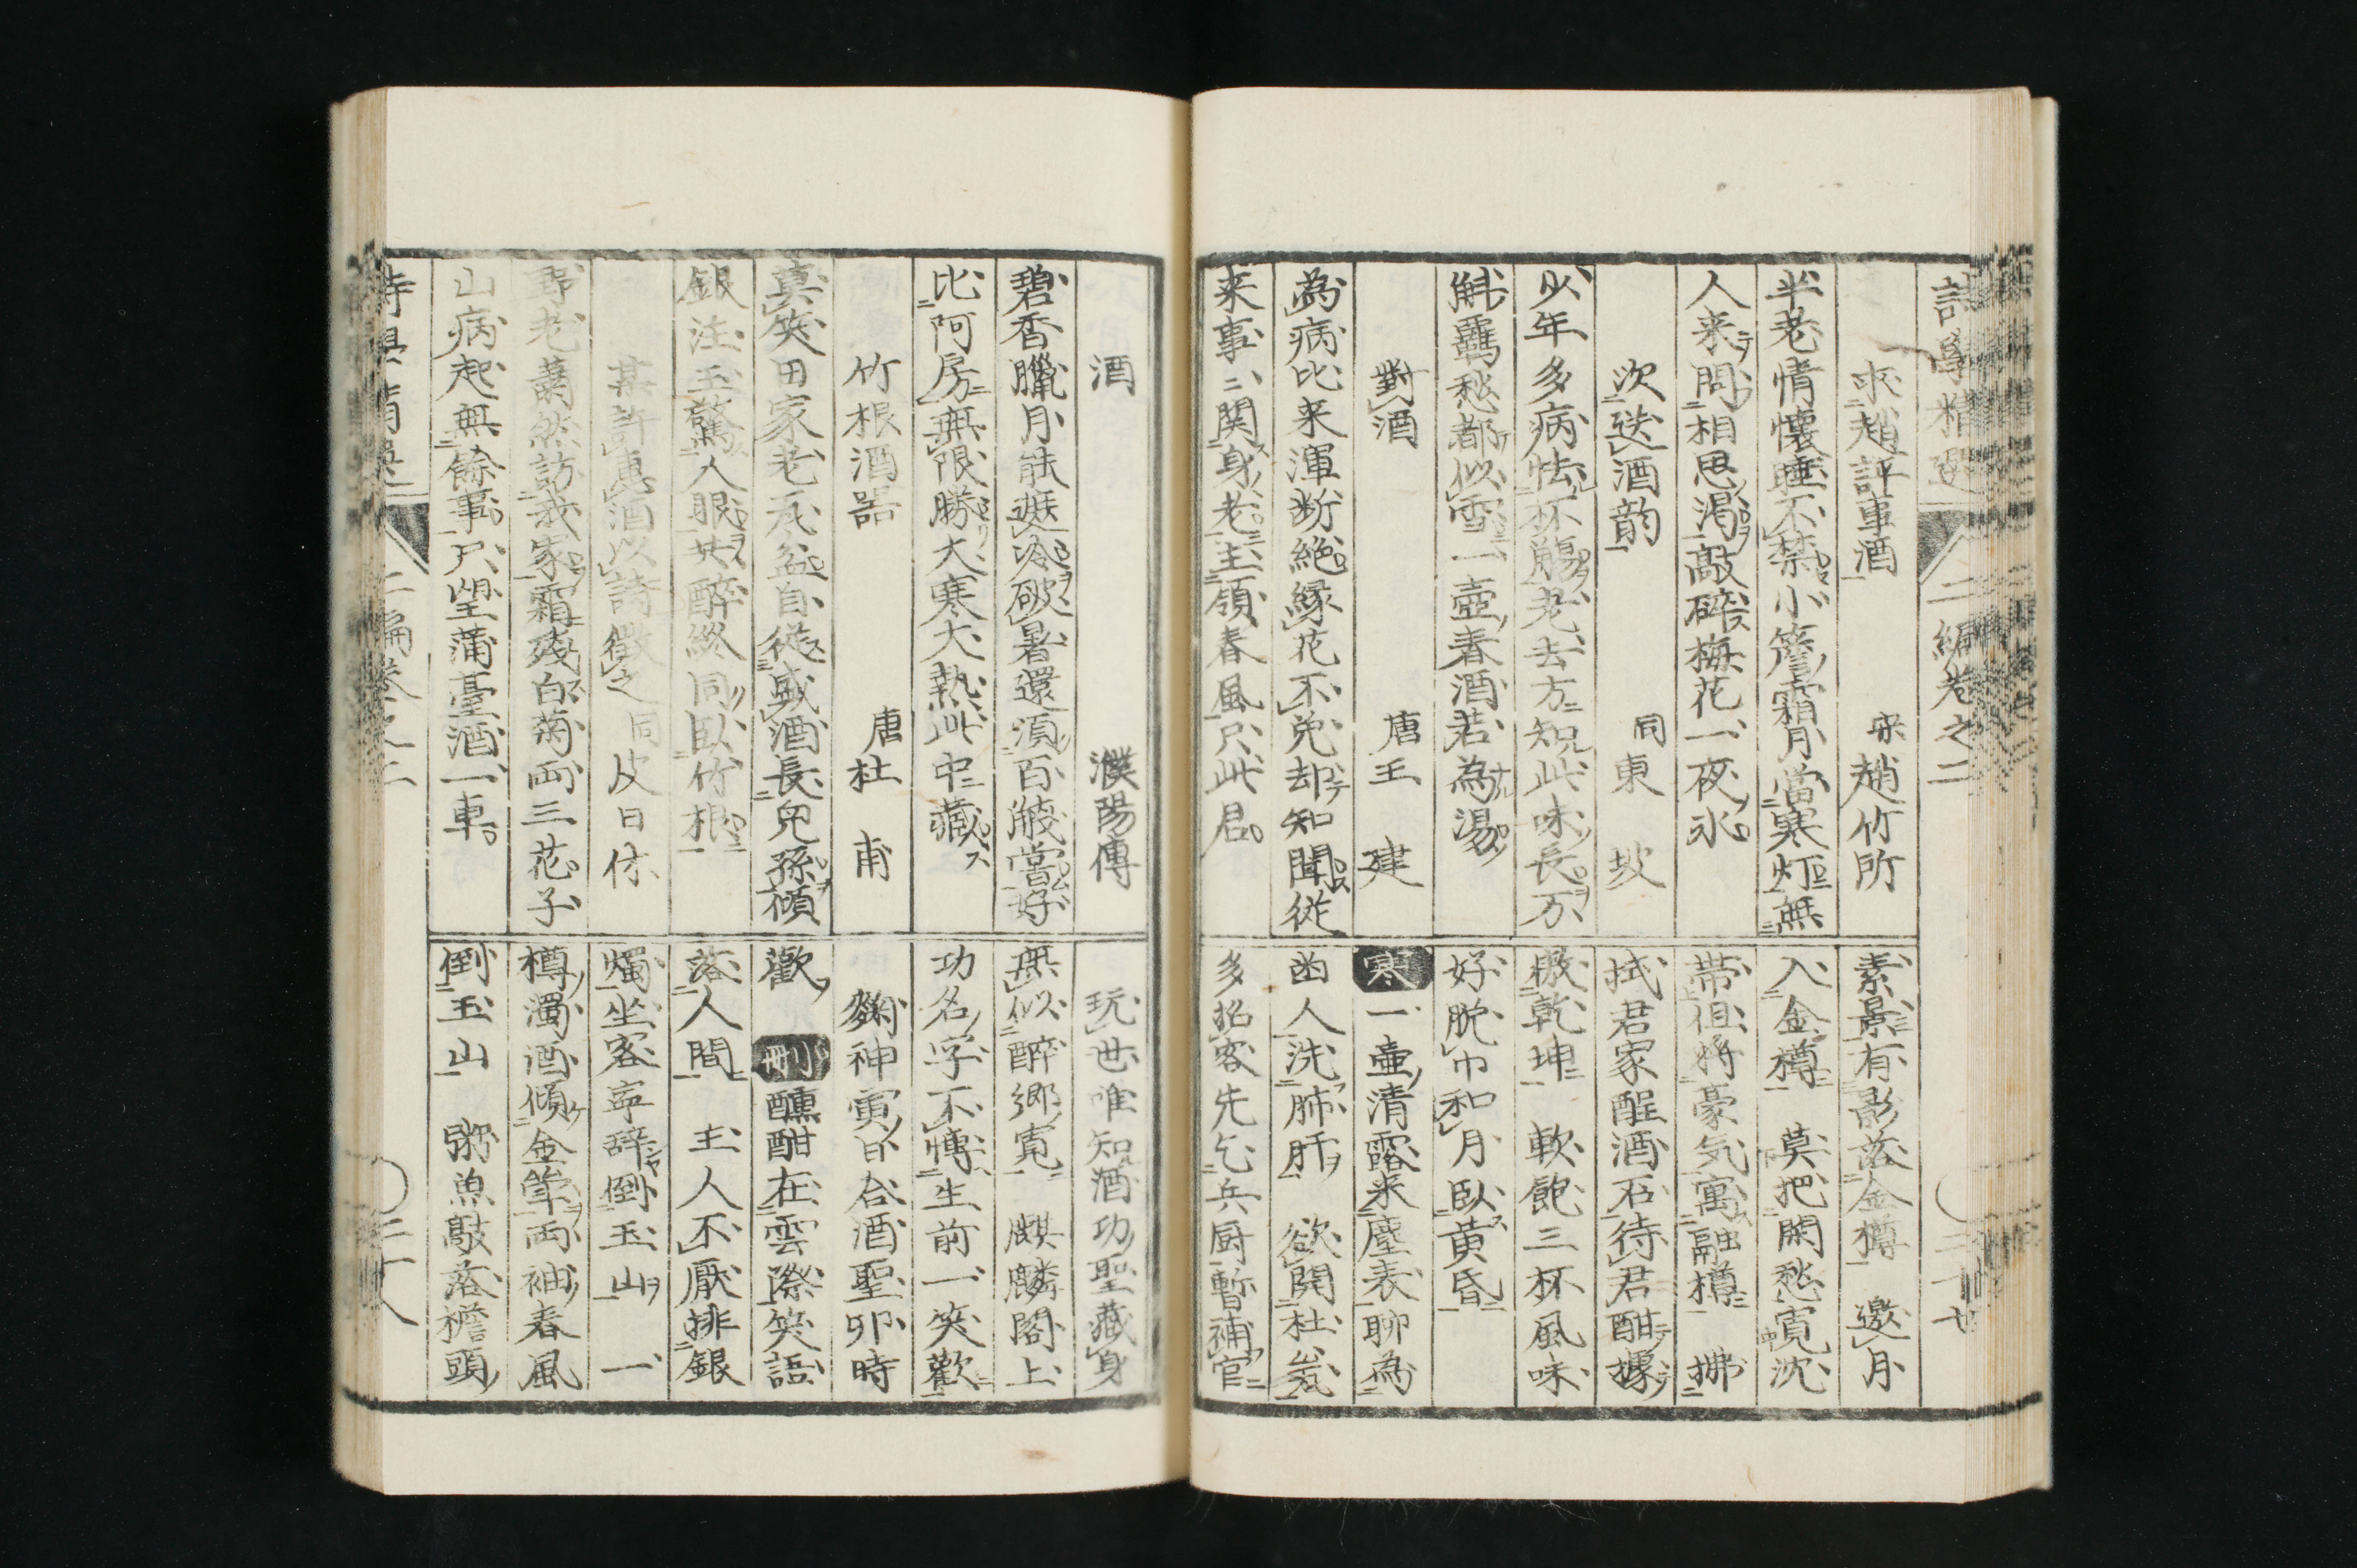 詩學精選 二編卷之二
求趙評事酒 宋趙竹所
半老情懷睡不禁小簷霜月當寒灯無
人来問相思渇敲碎梅花一夜氷
次送酒韵 同東坡
少年多病怯杯觴老去方知此味長万
斛羈愁都似雪一壺春酒若為湯
對酒 唐王建
為病比来渾断絶縁花不免却知聞從
来事二関身老主領春風只此君
素景有影落金樽 邀月
入金樽 莫把閑愁寛沈
帯俎将豪気寓融樽 拂
拭君家酲酒石待君酣據
乾坤 軟飽三杯風味
好脱巾和月臥黄昏
寒 一壺清露来塵表聊為
幽人洗肺肝 欲関杜
多招客先乞兵厨暫補官
酒 濮陽傳
碧香臘月能逃冷破暑還湏百觴當好
比阿房無限勝大寒大熱此中藏
竹根酒噐 唐杜甫
莫笑田家老瓦盆自從盛酒長兒孫傾
銀注玉驚人眼共醉終同臥竹根
某許惠酒以詩徴之 同皮日休
野老蕭然訪我家霜殘白菊両三花子
山病起無餘事只望蒲臺酒一車
玩世唯知酒功聖藏身
無似醉郷寛 麒麟閣上
功名字不博生前一笑歡
麹神寅日合酒聖卯時
歡 刪 醺酣在雲際笑語
落人間 主人不厭排銀
燭坐客寧辞倒玉山 一
樽濁酒傾金筆両袖春風
倒玉山 粥魚敲落檐頭
二編卷之二 二十八